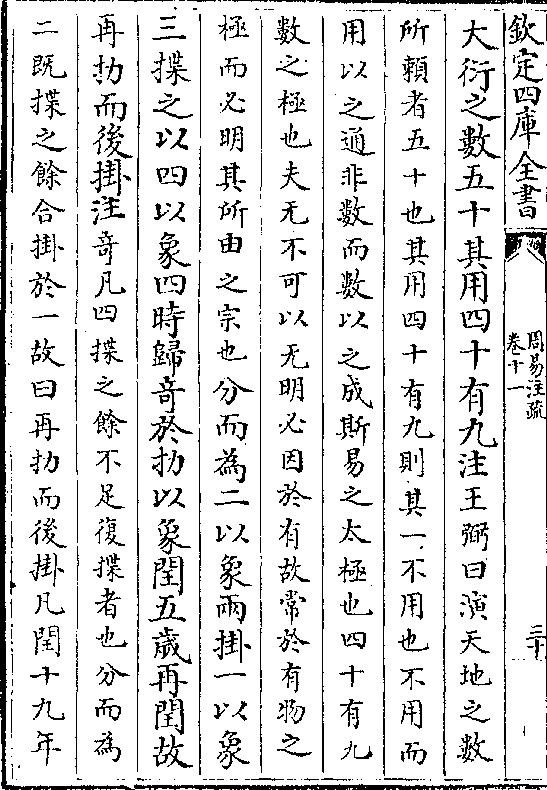 欽定四庫全書
周易注疏
卷十一
三十
大衍之數五十其用四十有九注王弼曰演天地之數
所賴者五十也其用四十有九則其一不用也不用而
用以之通非數而數以之成斯易之太極也四十有九
數之極也夫无不可以无明必因於有故常於有物之
極而必明其所由之宗也分而為二以象兩掛一以象
三揲之以四以象四時歸奇於扐以象閏五歲再閏故
再扐而後掛注奇凡四揲之餘不足復揲者也分而為
二既揲之餘合掛於一故曰再扐而後掛凡閏十九年